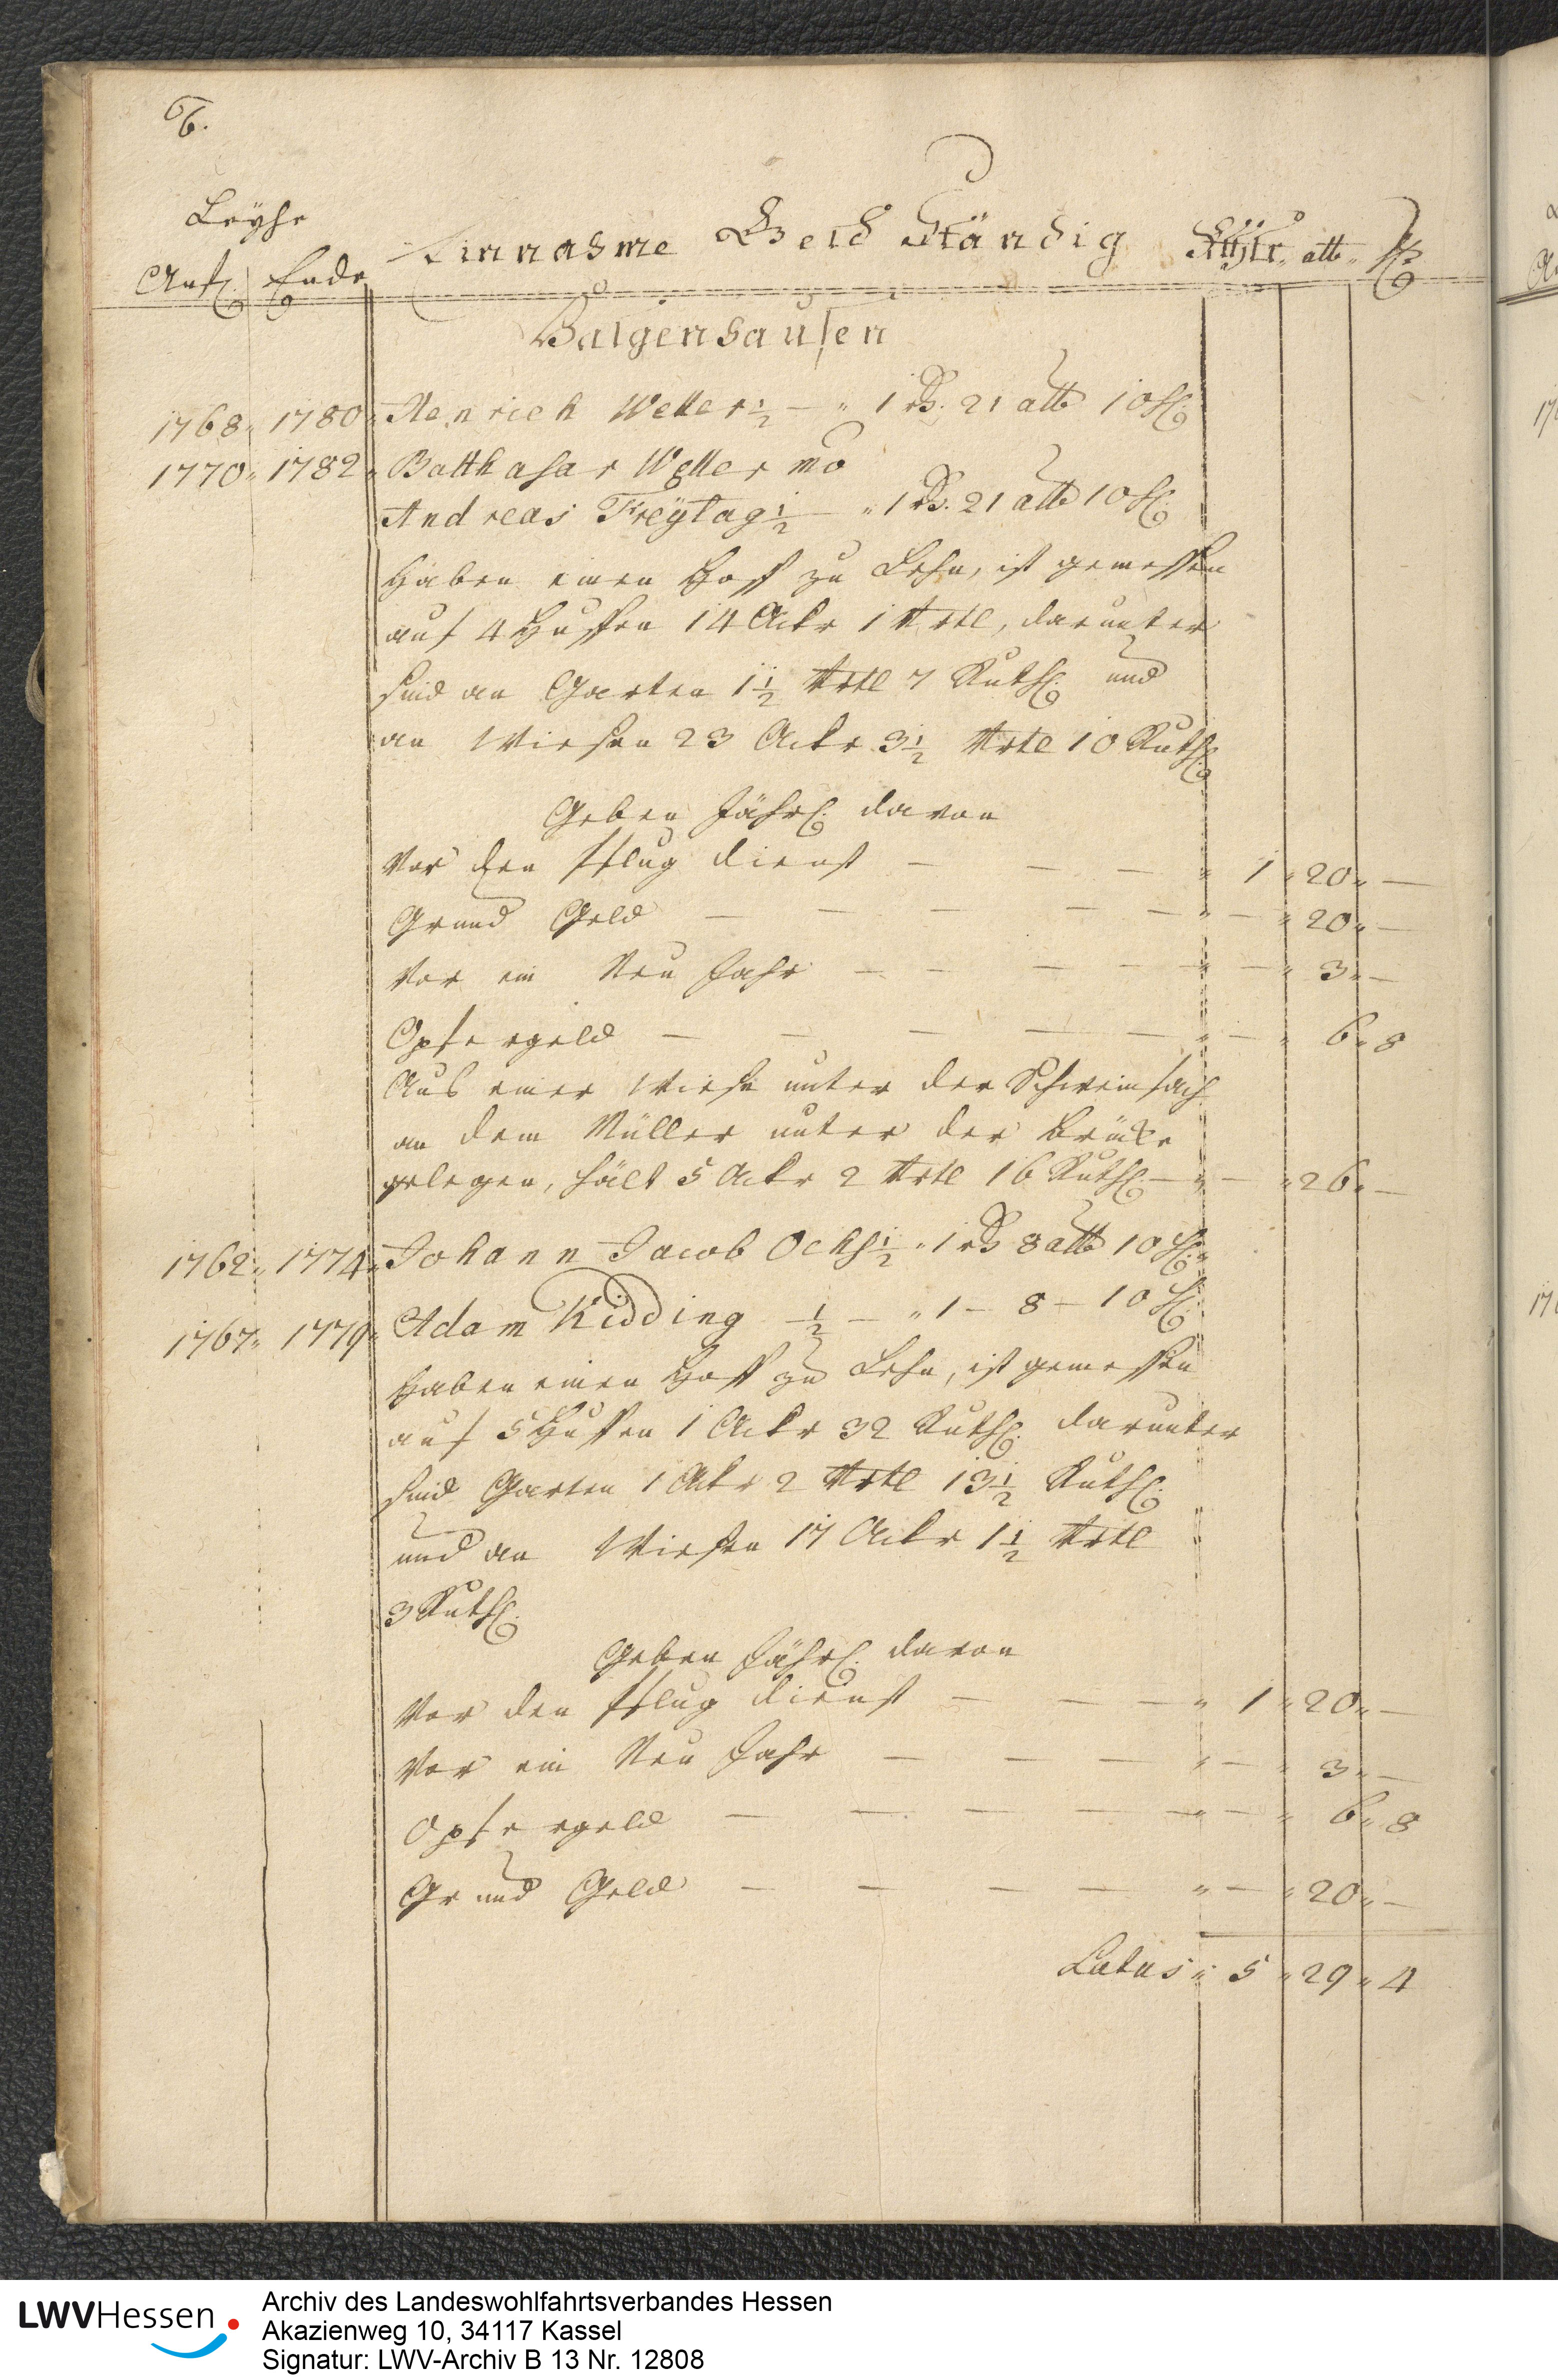 6.
Leyhe
Anf. Ende
Einnahme Geld Ständig Rthlr. alb. hlr
Balgenhausen
1768. 1780. Henrich Weller ½ — " 1 rt. 21 alb 10 hl.
1770. 1782. Balthasar Weller mo
Andreas Freÿtag ½ — " 1 rt. 21 alb 10 hl.
Haben einen Hoff zu Lehn, ist gemessen
auf 4 Hufen 14 Ackr 1 Vrtl, darunter
sind an Garten 1½ Vrtl 7 Ruth. und
an Wiesen 23 Ackr 3½ Vrtl 10 Ruth.
Geben Jährl. davon
Vor den Pflug dienst — — — " 1 " 20 " —
Grund Geld — — — — — " — " 20 " —
Vor ein Neu Jahr — — — — " — " 3 " —
Opfergeld — — — — — " — " 6 " 8
Aus einer Wiese unter der Schweinsach
an dem Müller unter der Brücke
gelegen, hält 5 Ackr 2 Vrtl 16 Ruth. — " — " 26 " —
1762. 1774. Johann Jacob Ochs ½ " 1 rt 8 alb 10 hl.
1767. 1779. Adam Kidding ½ — " 1 — 8 — 10 hl.
Haben einen Hoff zu Lehn, ist gemessen
auf 5 Hufen 1 Ackr 32 Ruth. darunter
sind Garten 1 Ackr 2 Vrtl 13½ Ruth.
und an Wiesen 17 Ackr 1½ Vrtl
3 Ruth.
Geben Jährl. davon
Vor den Pflug dienst — — — " 1 " 20 " —
Vor ein Neu Jahr — — — " — " 3 " —
Opfergeld — — — — " — " 6 " 8
Grund Geld — — — — " — " 20 " —
Latus " 5 " 29 " 4
LWVHessen
Archiv des Landeswohlfahrtsverbandes Hessen
Akazienweg 10, 34117 Kassel
Signatur: LWV-Archiv B 13 Nr. 12808